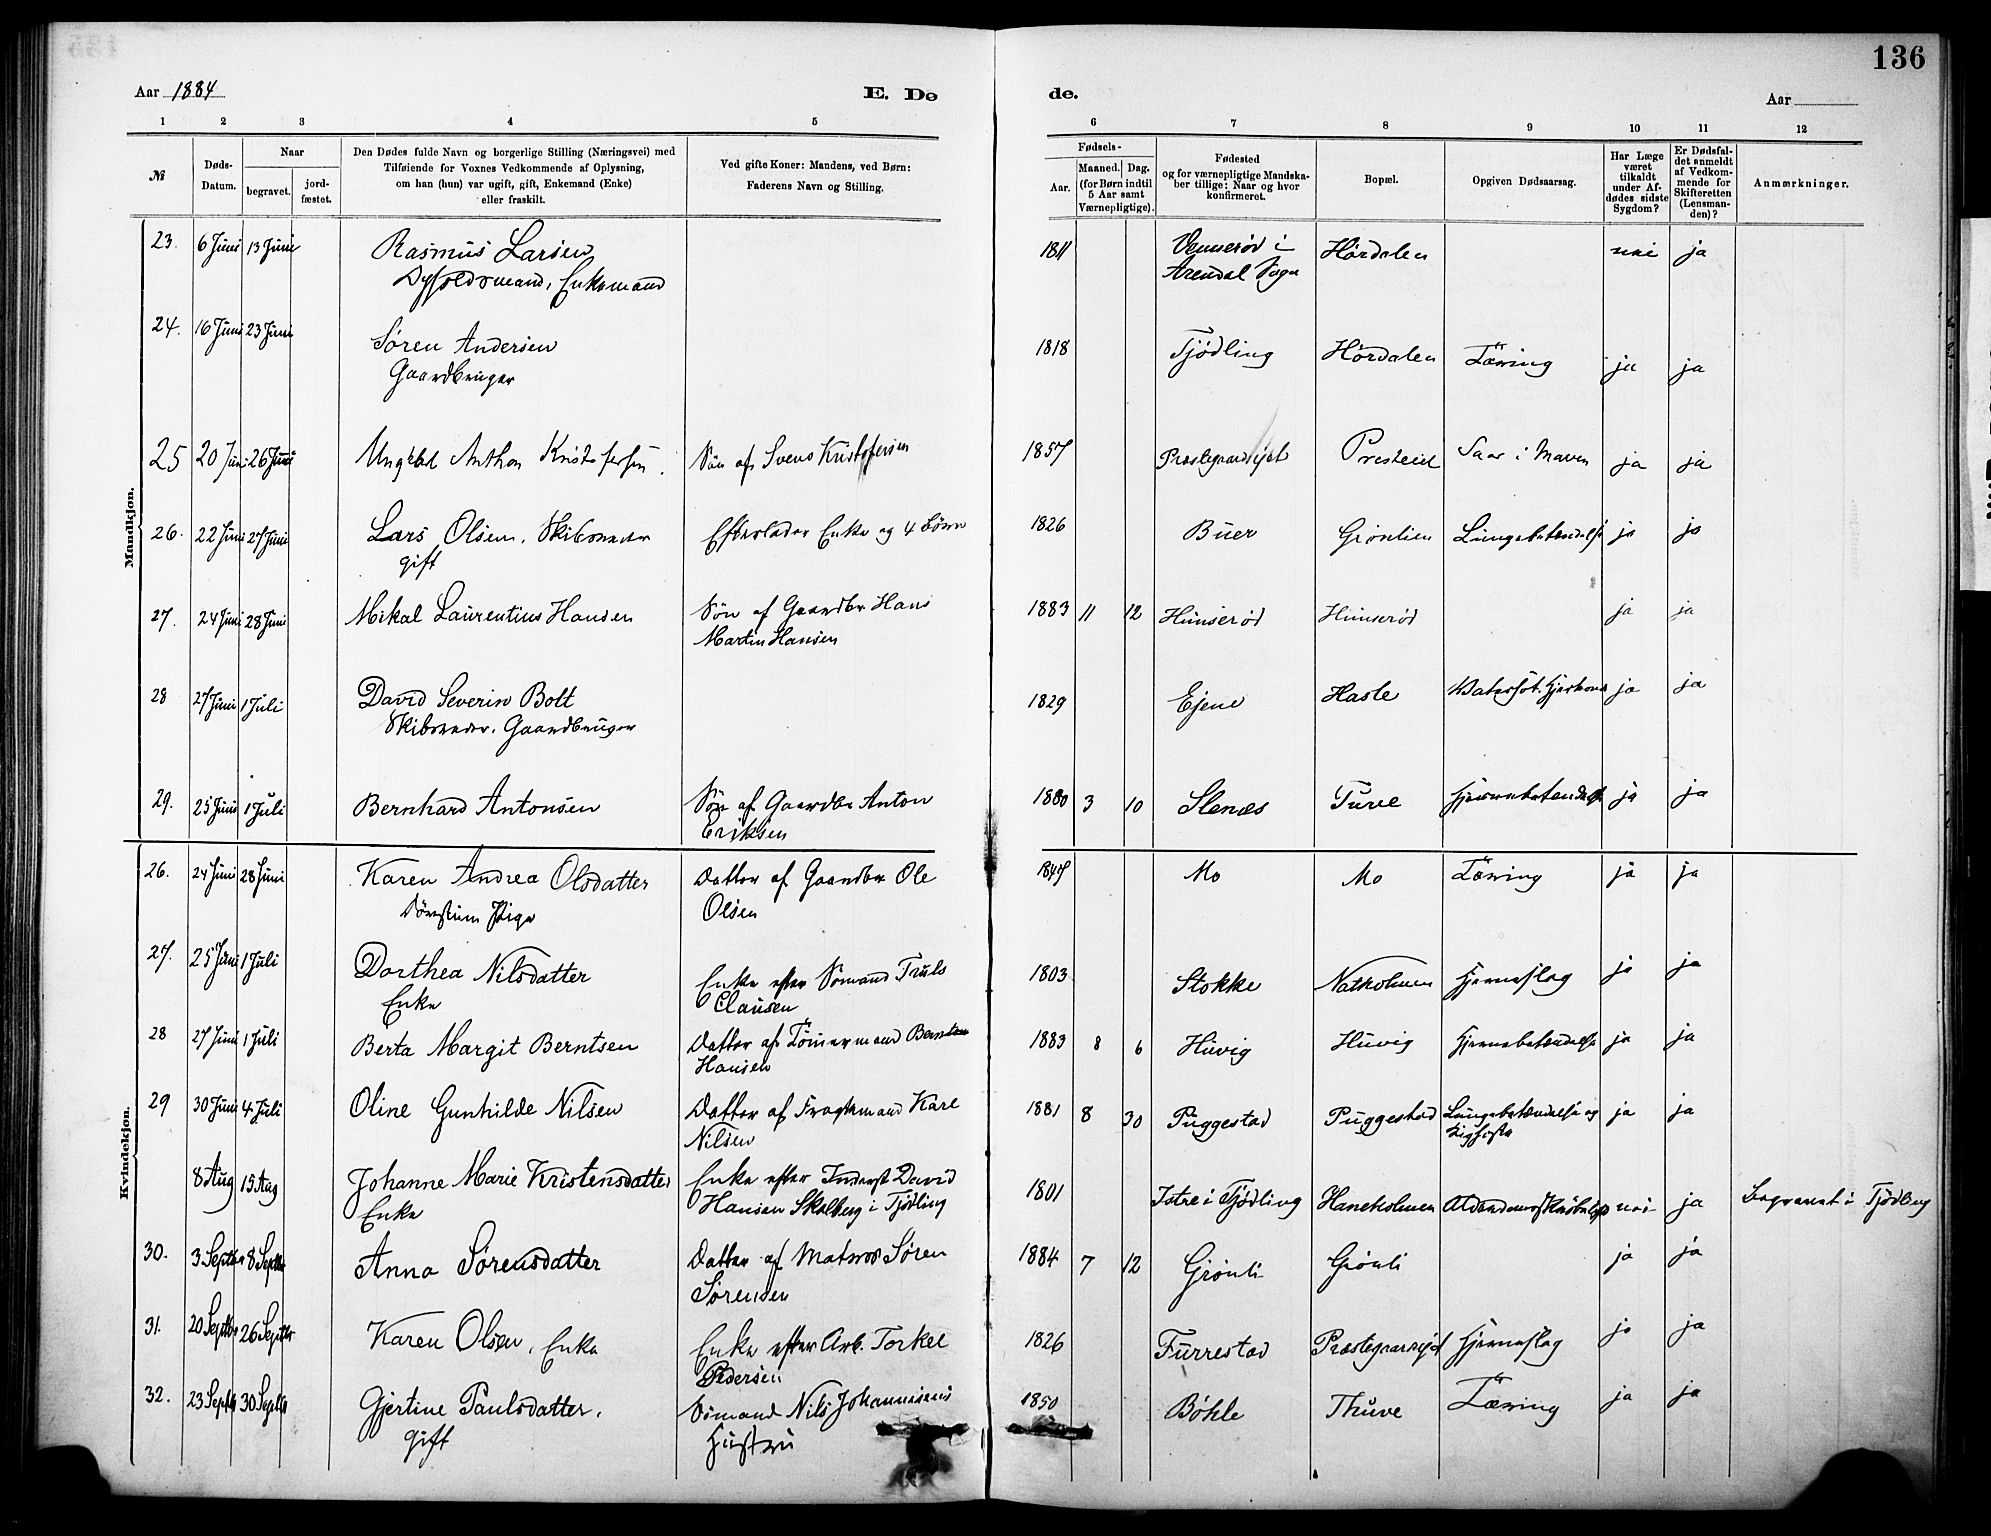 136
Aar 1884
E. Dø
de.
Aar
1 2 3 4 5 6 7 8 9 10 11 12
№
Døds-Datum.
Naar
begravet.
jord-fæstet.
Den Dødes fulde Navn og borgerlige Stilling (Næringsvei) med
Tilføiende for Voxnes Vedkommende af Oplysning,
om han (hun) var ugift, gift, Enkemand (Enke)
eller fraskilt.
Ved gifte Koner: Mandens, ved Børn:
Faderens Navn og Stilling.
Fødsels-
Aar.
Maaned. Dag.
(for Børn indtil
5 Aar samt
Værnepligtige).
Fødested
og for værnepligtige Mandska-
ber tillige: Naar og hvor
konfirmeret.
Bopæl.
Opgiven Dødsaarsag.
Har Læge
været
tilkaldt
under Af-
dødes sidste
Sygdom?
Er Dødsfal-
det anmeldt
af Vedkom-
mende for
Skifteretten
(Lensman-
den)?
Anmærkninger.
Mandkjøn.
23. 6 Juni 13 Juni Rasmus Larsen 1811 i Hørdalen nei ja
Enkemand Arendal Sogn
24. 16 Juni 23 Juni Søren Andersen 1818 Tjødling Hørdalen Tæring ja ja
Gaardbruger
25 20 Juni 26 Juni Ungkarl Anthon Kristofersen. Søn af Svens Kristofersen 1857 Presteeie Saar i Maven ja ja
26. 22 Juni 27 Juni Lars Olsen, Skibsreder Efterlader Enke og 4 Børn 1826 Buer Grønlien Lungebetændelse ja ja
gift
27. 24 Juni 28 Juni Mikal Laurentius Hansen Søn af Gaardbr Hans 1883 11 12 Hunserød Hunserød ja ja
Martin Hansen
28 27 Juni 1 Juli David Severin Bolt 1829 Ejene Hasle ja ja
Skibsreder. Gaardbruger
29. 25 Juni 1 Juli Bernhard Antonsen Søn af Gaardbr Anton 1880 3 10 Stenæs Ture Hjernebetændelse ja ja
Eriksen
Kvindekjøn.
26. 24 Juni 28 Juni Karen Andrea Olsdatter Datter af Gaardbr Ole 1847 Mo Mo Tæring ja ja
Pige Olsen
27. 25 Juni 1 Juli Dorthea Nilsdatter Enke efter Sømand Truls 1803 Stokke Natholmen Hjerneslag ja ja
Enke Clausen
28 27 Juni 1 Juli Berta Margit Berntsen Datter af Tømermand Berntsen 1883 8 6 Huvig Huvig Hjernebetændelse ja ja
Hansen
29 30 Juni 4 Juli Oline Gunhilde Nilsen Datter af Fragtemand Karl 1881 8 30 Puggestad Puggestad Lungebetændelse og ja ja
Nilsen Kighoste
8 Aug 15 Aug Johanne Marie Kristensdatter Enke efter Inderst David 1801 Istre i Tjødling Haneholmen nei ja Begravet i Tjødling
Enke Hansen Skalberg i Tjødling
30. 3 Septbr 8 Septbr Anna Sørensdatter Datter af Matros Søren 1884 7 12 Grønli Grønli ja ja
Sørensen
31. 20 Septbr 26 Septbr Karen Olsen, Enke Enke efter Arb. Torkel 1826 Furrestad Hjerneslag ja ja
Pedersen
32. 23 Septbr 30 Septbr Gjertine Paulsdatter. Sømand Nils Johannesens 1850 Bøhle Thuve Tæring ja ja
gift Hustru